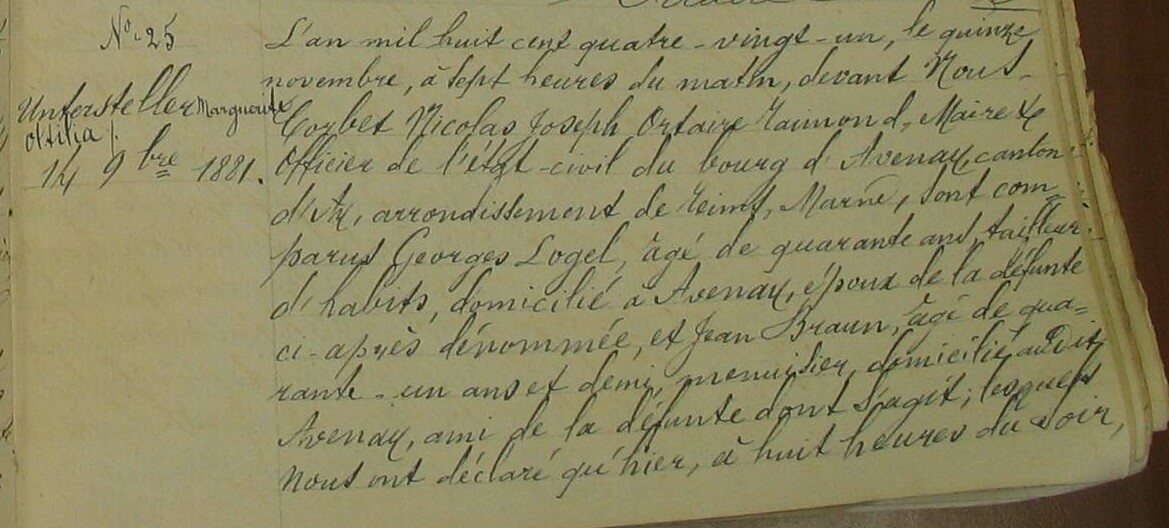 N° 25
Untersteller Marguerite
Ottilia
14 9bre 1881.
L'an mil huit cent quatre-vingt-un, le quinze
novembre, à sept heures du matin, devant Nous
Corbet Nicolas Joseph Ortaire Raimond, Maire &
Officier de l'état-civil du bourg d'Avenay, canton
d'Ay, arrondissement de Reims, Marne, sont com=
parus Georges Logel, âgé de quarante ans, tailleur
d'habits, domicilié à Avenay, époux de la défunte
ci-après dénommée, et Jean Braun, âgé de qua=
rante-un ans et demi, menuisier, domicilié audit
Avenay, ami de la défunte dont s'agit; lesquels
Nous ont déclaré qu'hier, à huit heures du soir,